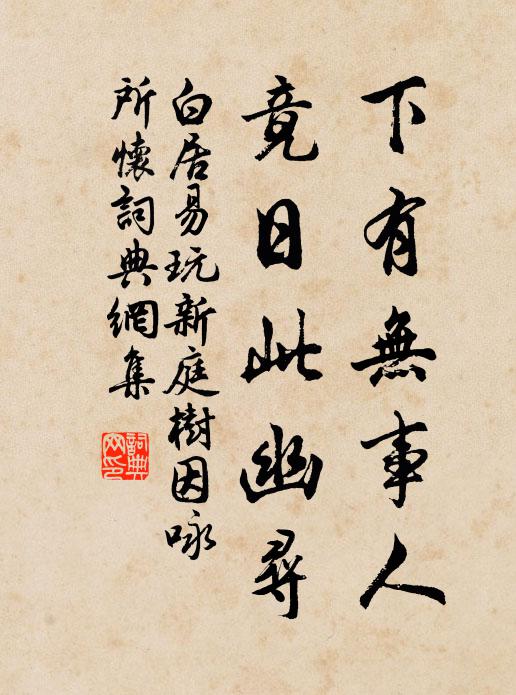 下有無事人
竟日此幽尋
白居易玩新庭樹因咏
所懷詞典網集
詞典網印